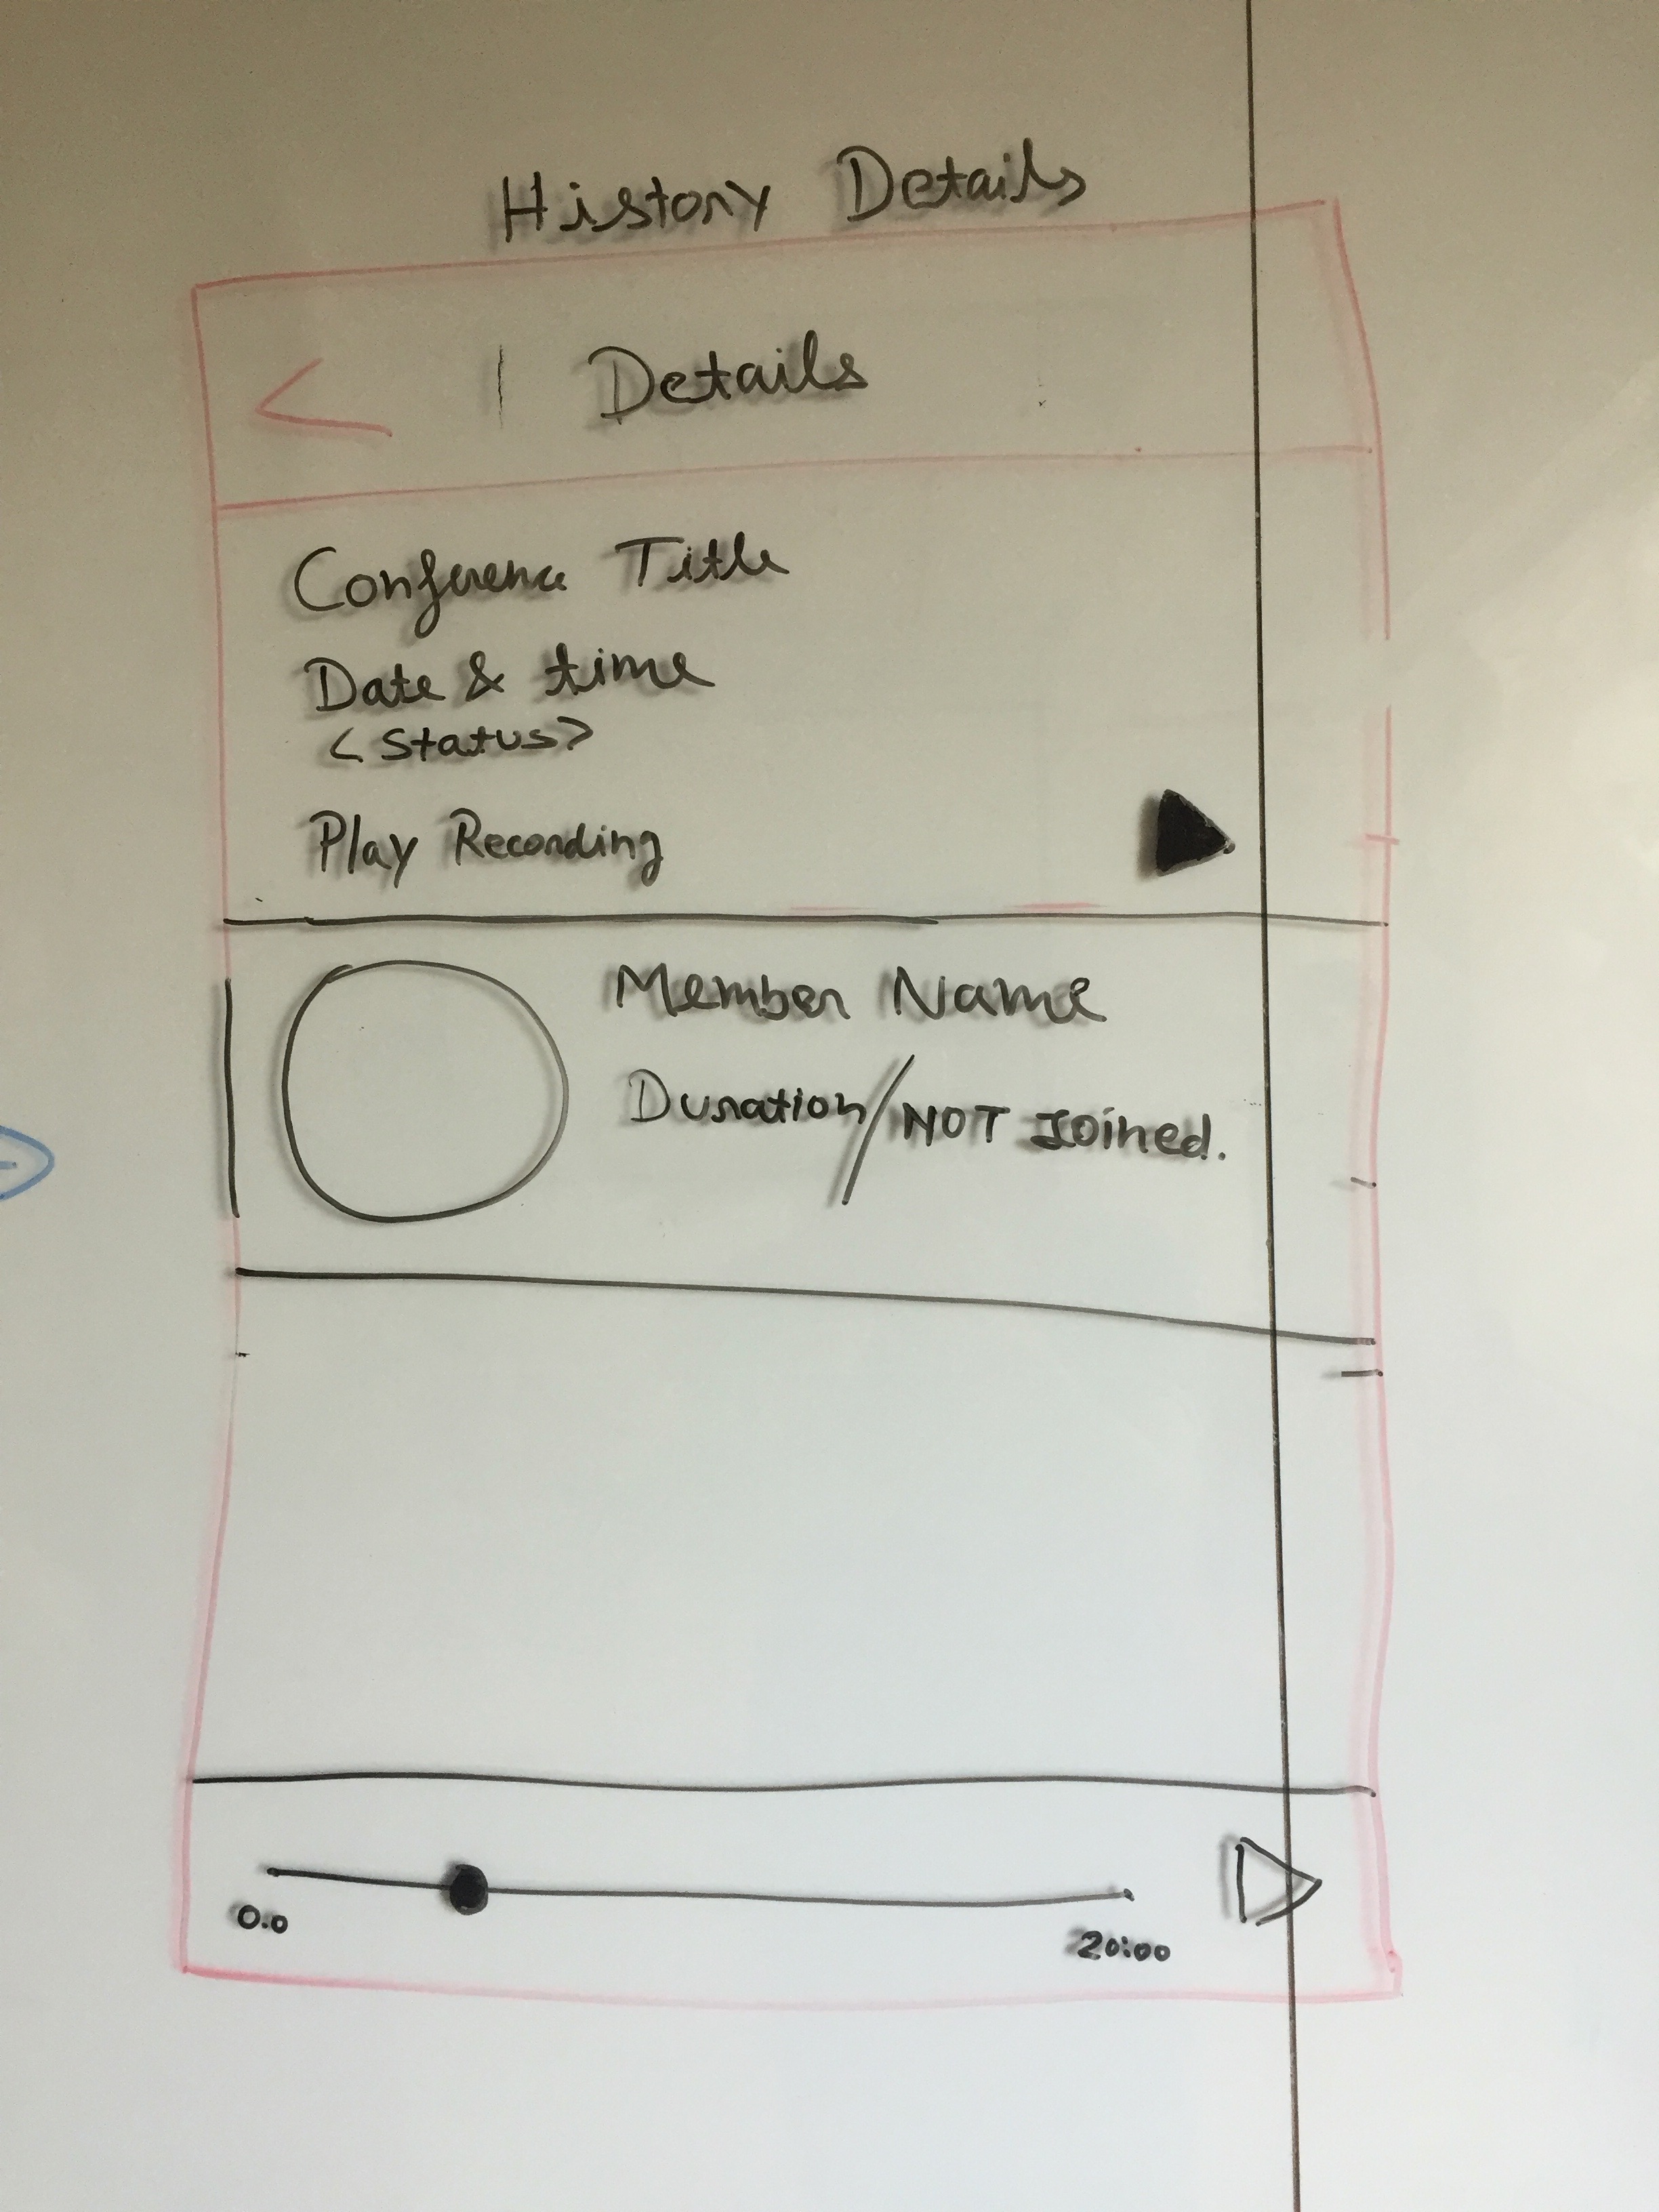 History Details
Details
Conference Title
Date & time
<Status>
Play Recording
Member Name
Duration/NOT Joined.
0.0
20:00